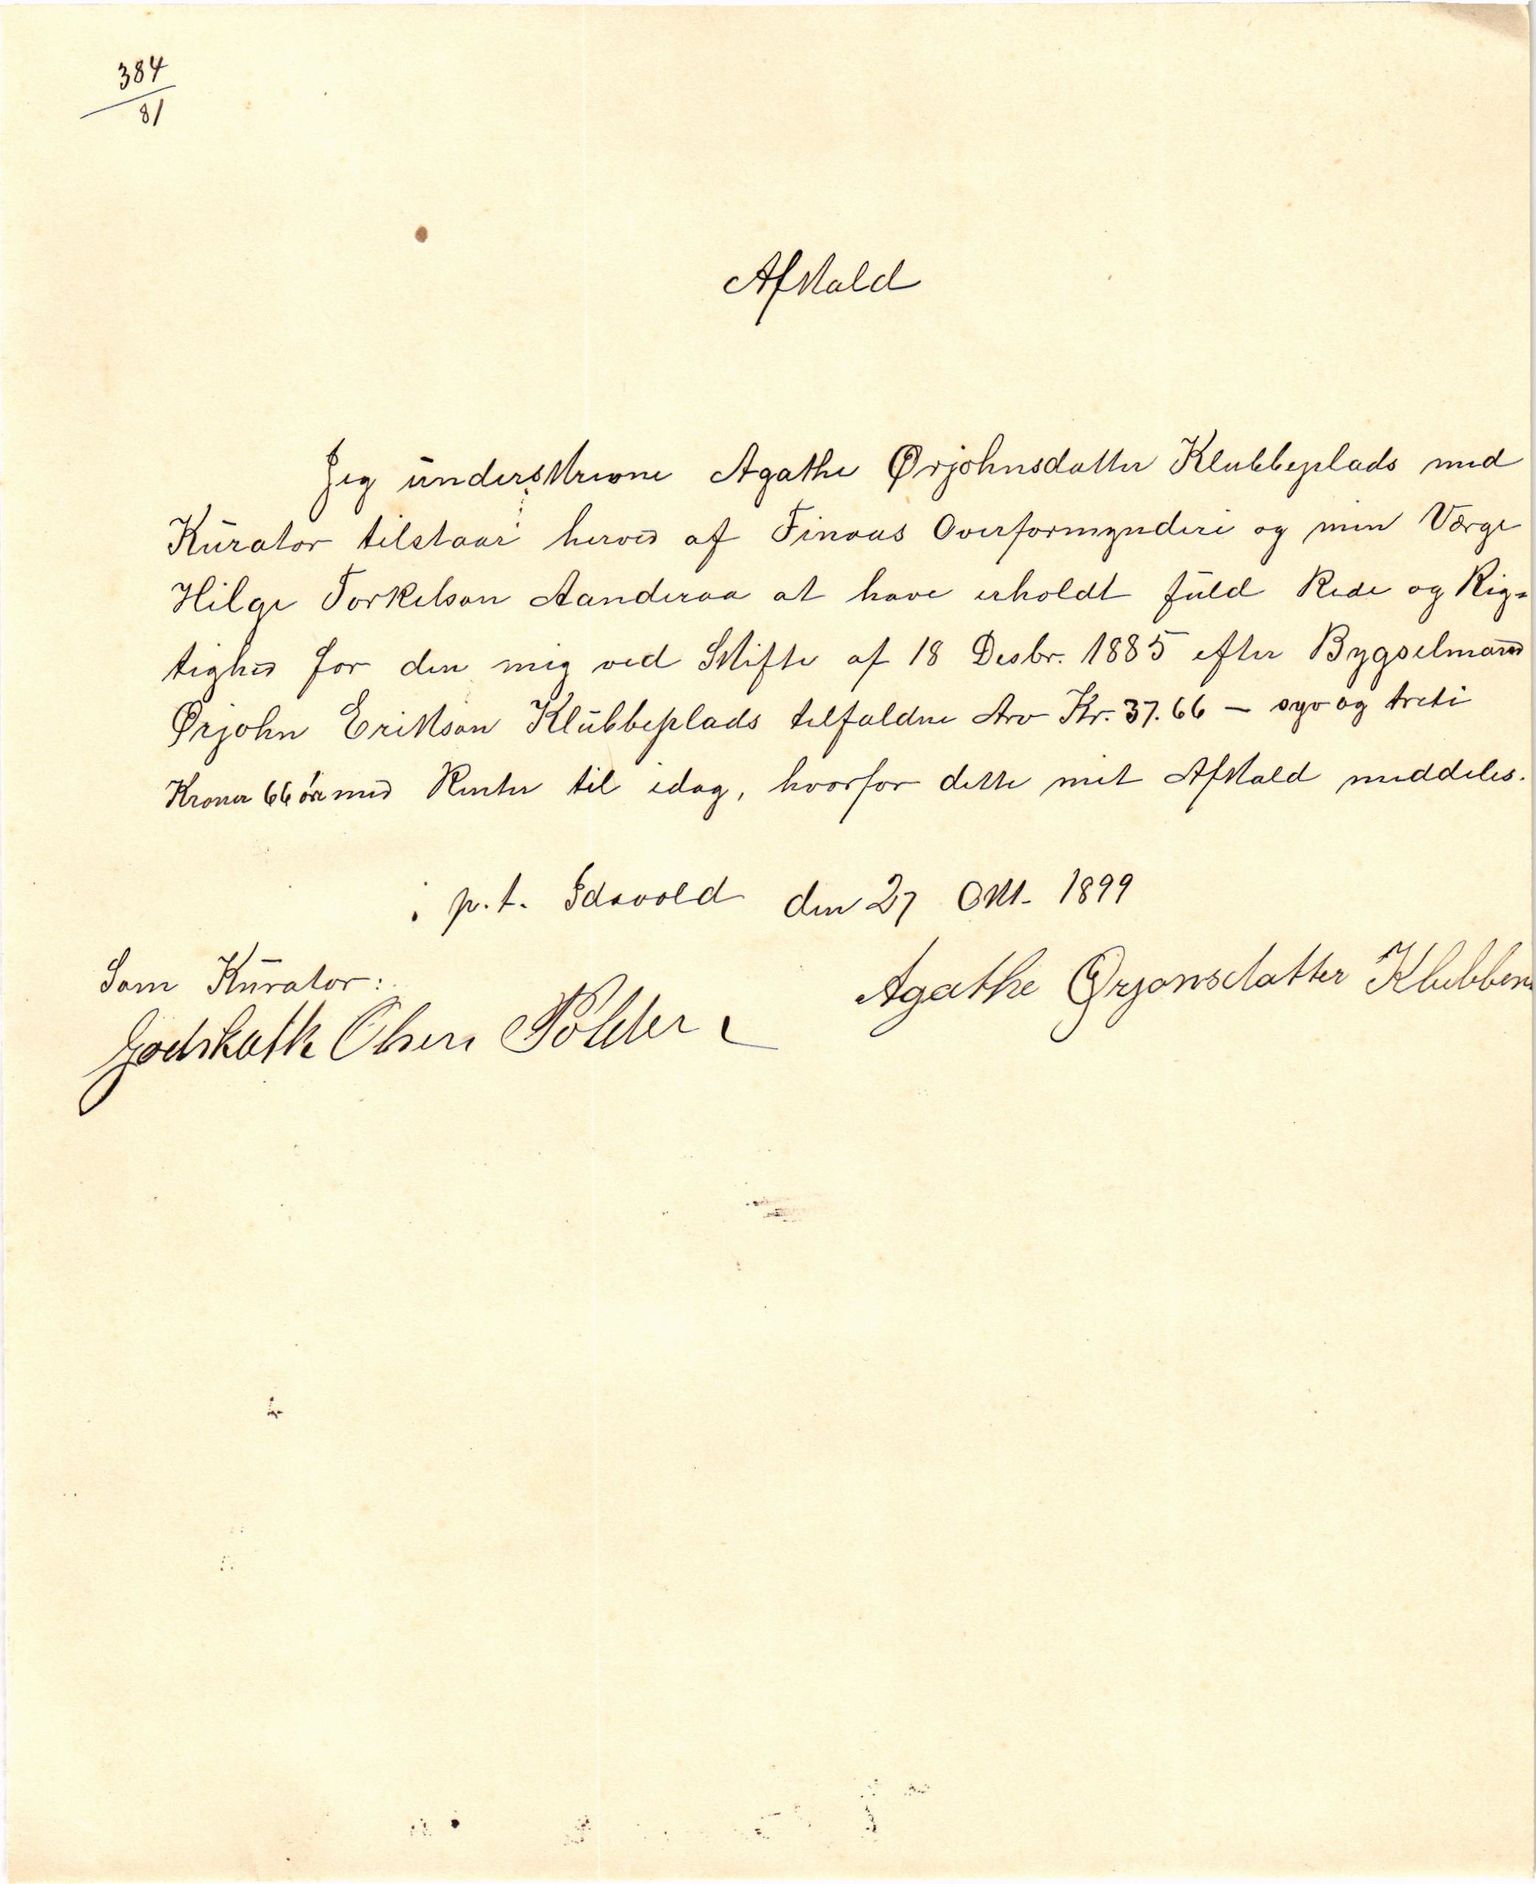 384
81
Afkald
Jeg underskrevne Agathe Ørjohnsdatter Klubbeplads med
Kurator tilstaar herved af Finaas Overformynderi og min Værge
Helge Torkelson Aanderaa at have erholdt fuld Rede og Rig-
tighed for den mig ved Skifte af 18 Desbr. 1885 efter Bygselmand
Ørjohn Erikson Klubbeplads tilfaldne Arv Kr. 37.66 — syv og treti
Kroner 66 øre med Renter til idag, hvorfor dette mit Afkald meddeles.
p.t. Idavold den 27 Okt. 1899
Som Kurator:
Agathe Ørjonsdatter Klubben
Godskalk Olsen Polden